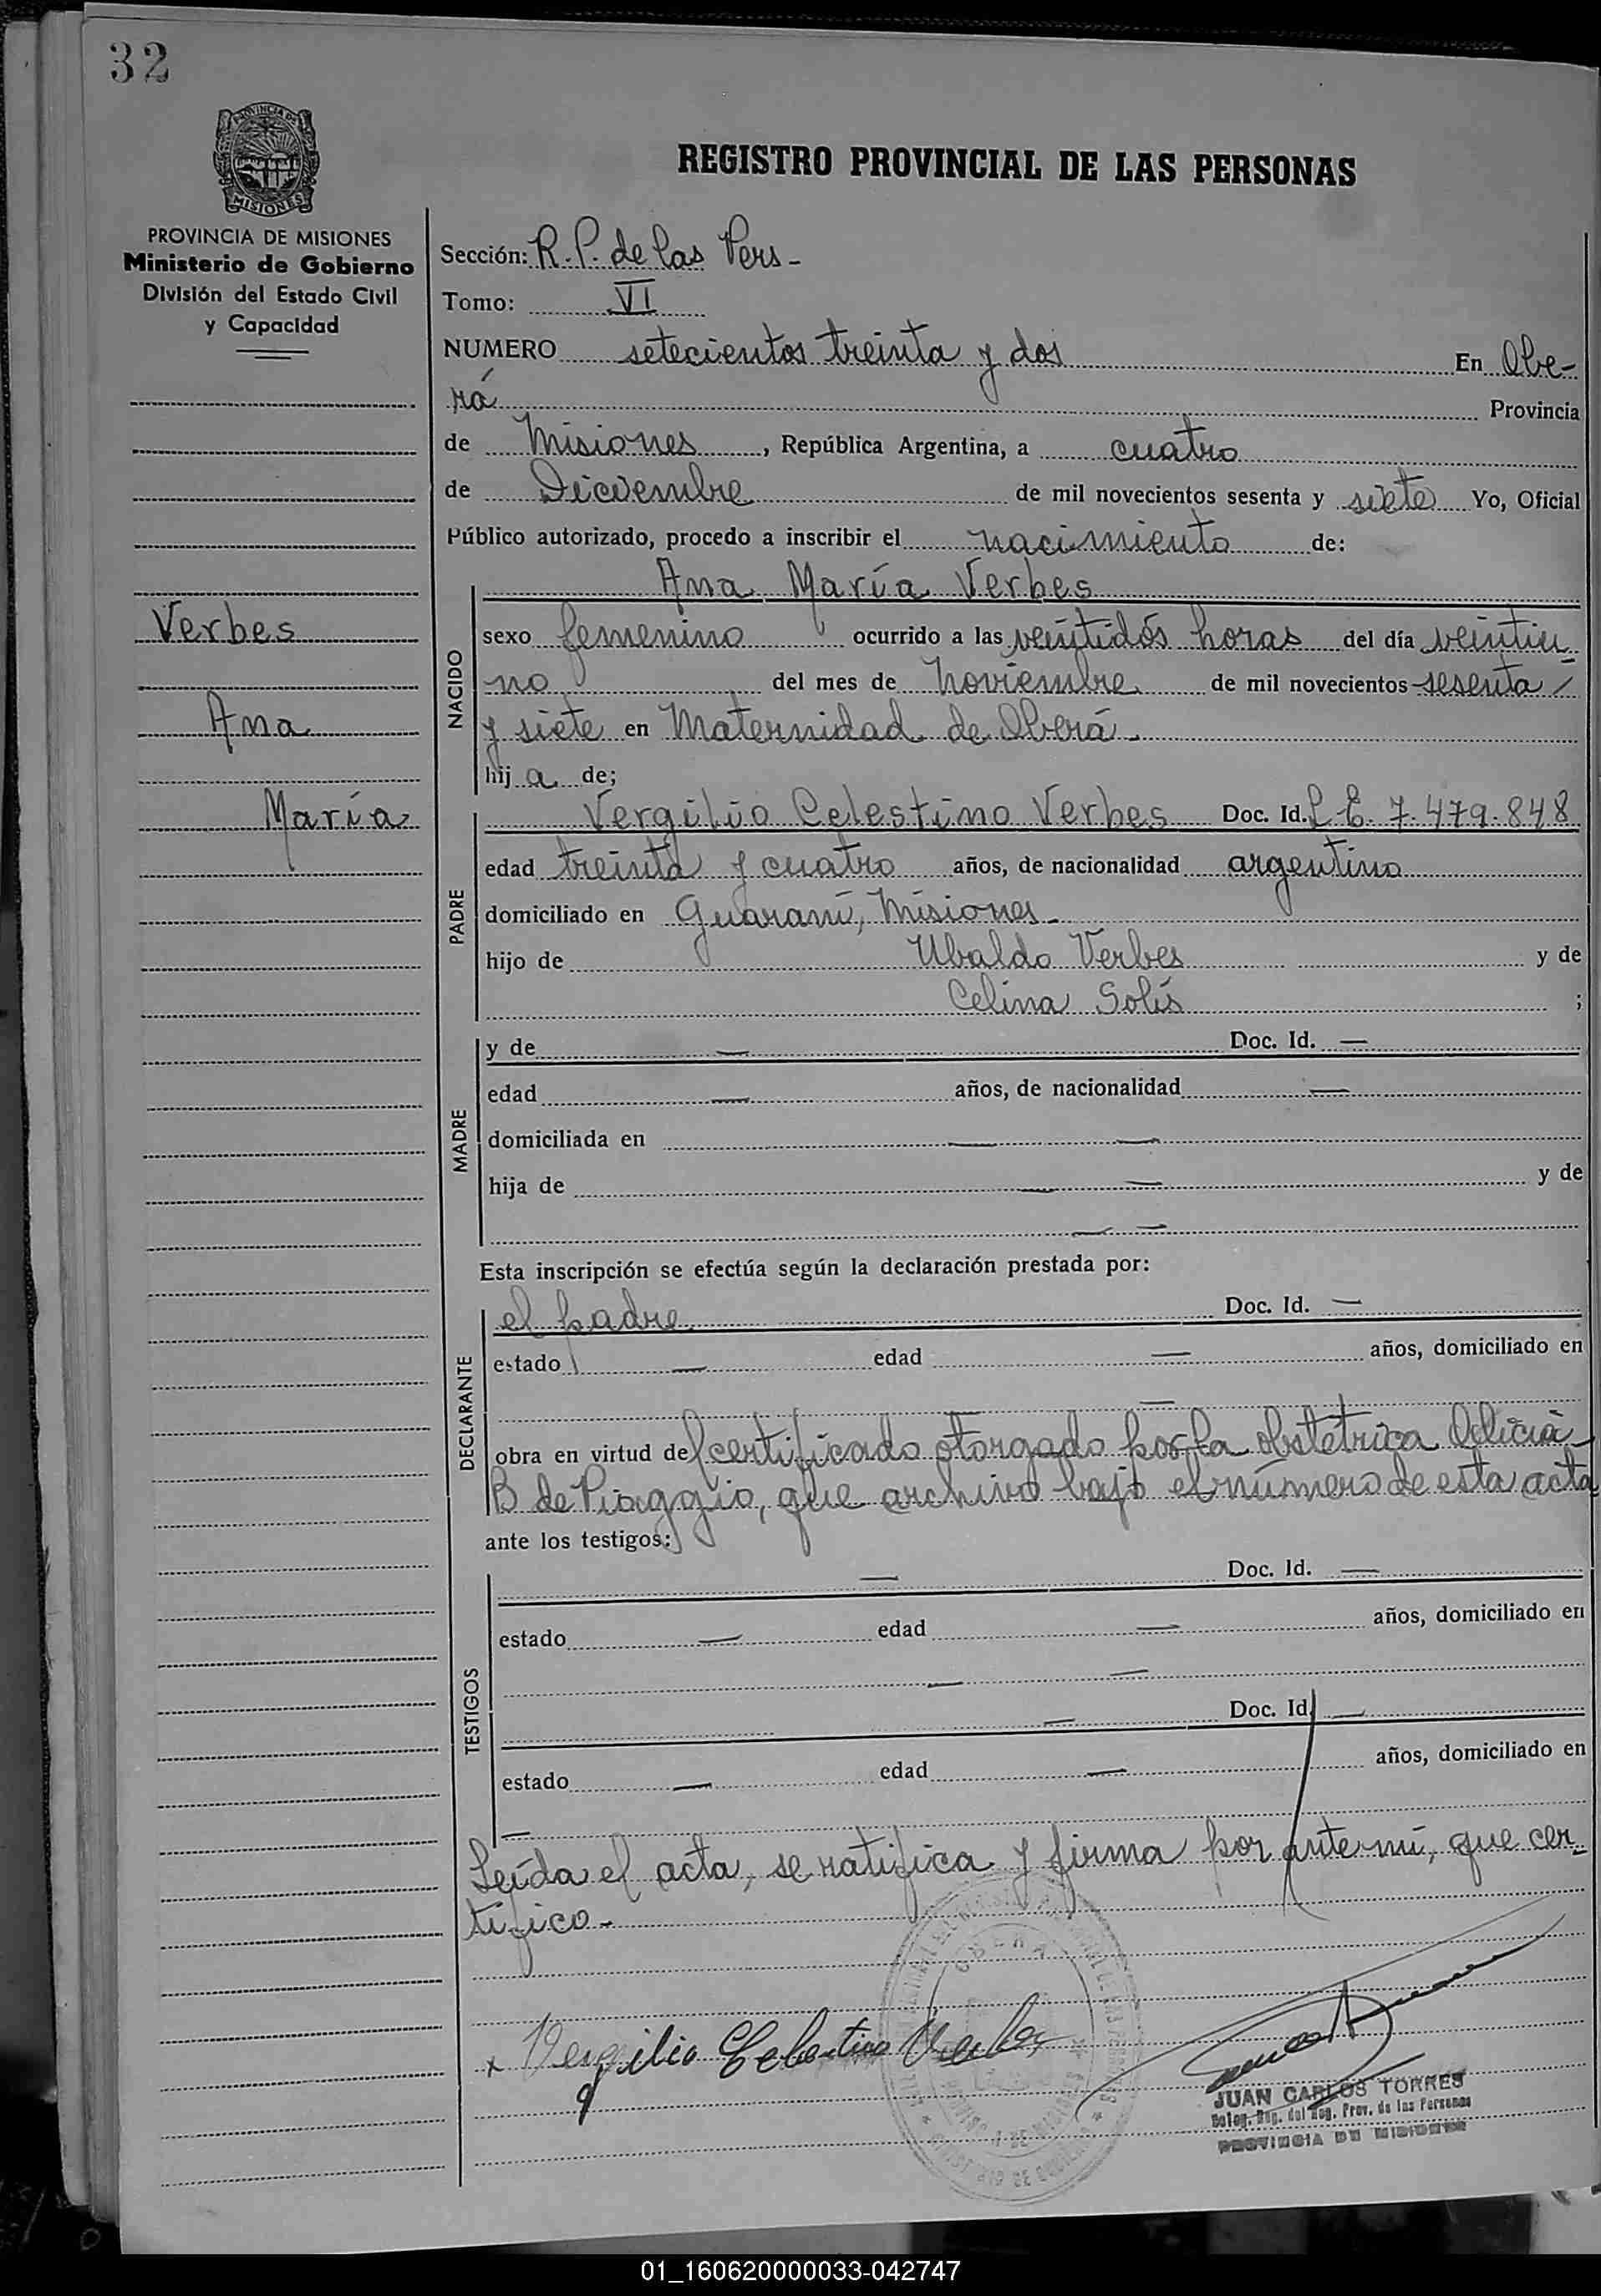 32
PROVINCIA DE
MISIONES
REGISTRO PROVINCIAL DE LAS PERSONAS
PROVINCIA DE MISIONES
Ministerio de Gobierno
División del Estado Civil
y Capacidad
Verbes
Ana
María
Sección: R.P. de las Pers-
Tomo: VI
NUMERO setecientos treinta y dos En Obe-
rá Provincia
de Misiones, República Argentina, a cuatro
de Diciembre de mil novecientos sesenta y siete Yo, Oficial
Público autorizado, procedo a inscribir el nacimiento de:
NACIDO
Ana María Verbes
sexo femenino ocurrido a las veintidós horas del día veintiu-
no del mes de noviembre de mil novecientos sesenta
y siete en Maternidad de Oberá.
hij a de;
PADRE
Vergilio Celestino Verbes Doc. Id. L E. 7.479.848
edad treinta y cuatro años, de nacionalidad argentino
domiciliado en Guaraní, Misiones-
hijo de Ubaldo Verbes y de
Celina Solís ;
MADRE
y de — Doc. Id. —
edad — años, de nacionalidad —
domiciliada en — —
hija de — — y de
— —
Esta inscripción se efectúa según la declaración prestada por:
DECLARANTE
el padre Doc. Id. —
estado — edad — años, domiciliado en
—
obra en virtud del certificado otorgado por la obstetrica Delicia
B de Piaggio, que archivo bajo el número de esta acta
ante los testigos:
TESTIGOS
— Doc. Id. —
estado — edad — años, domiciliado en
— —
— Doc. Id. —
estado — edad — años, domiciliado en
—
Leída el acta, se ratifica y firma por ante mí, que cer-
tifico-
x Vergilio Celestino Verbes
JUAN CARLOS TORRES
Deleg. Reg. del Reg. Prov. de las Personas
PROVINCIA DE MISIONES
01_160620000033-042747